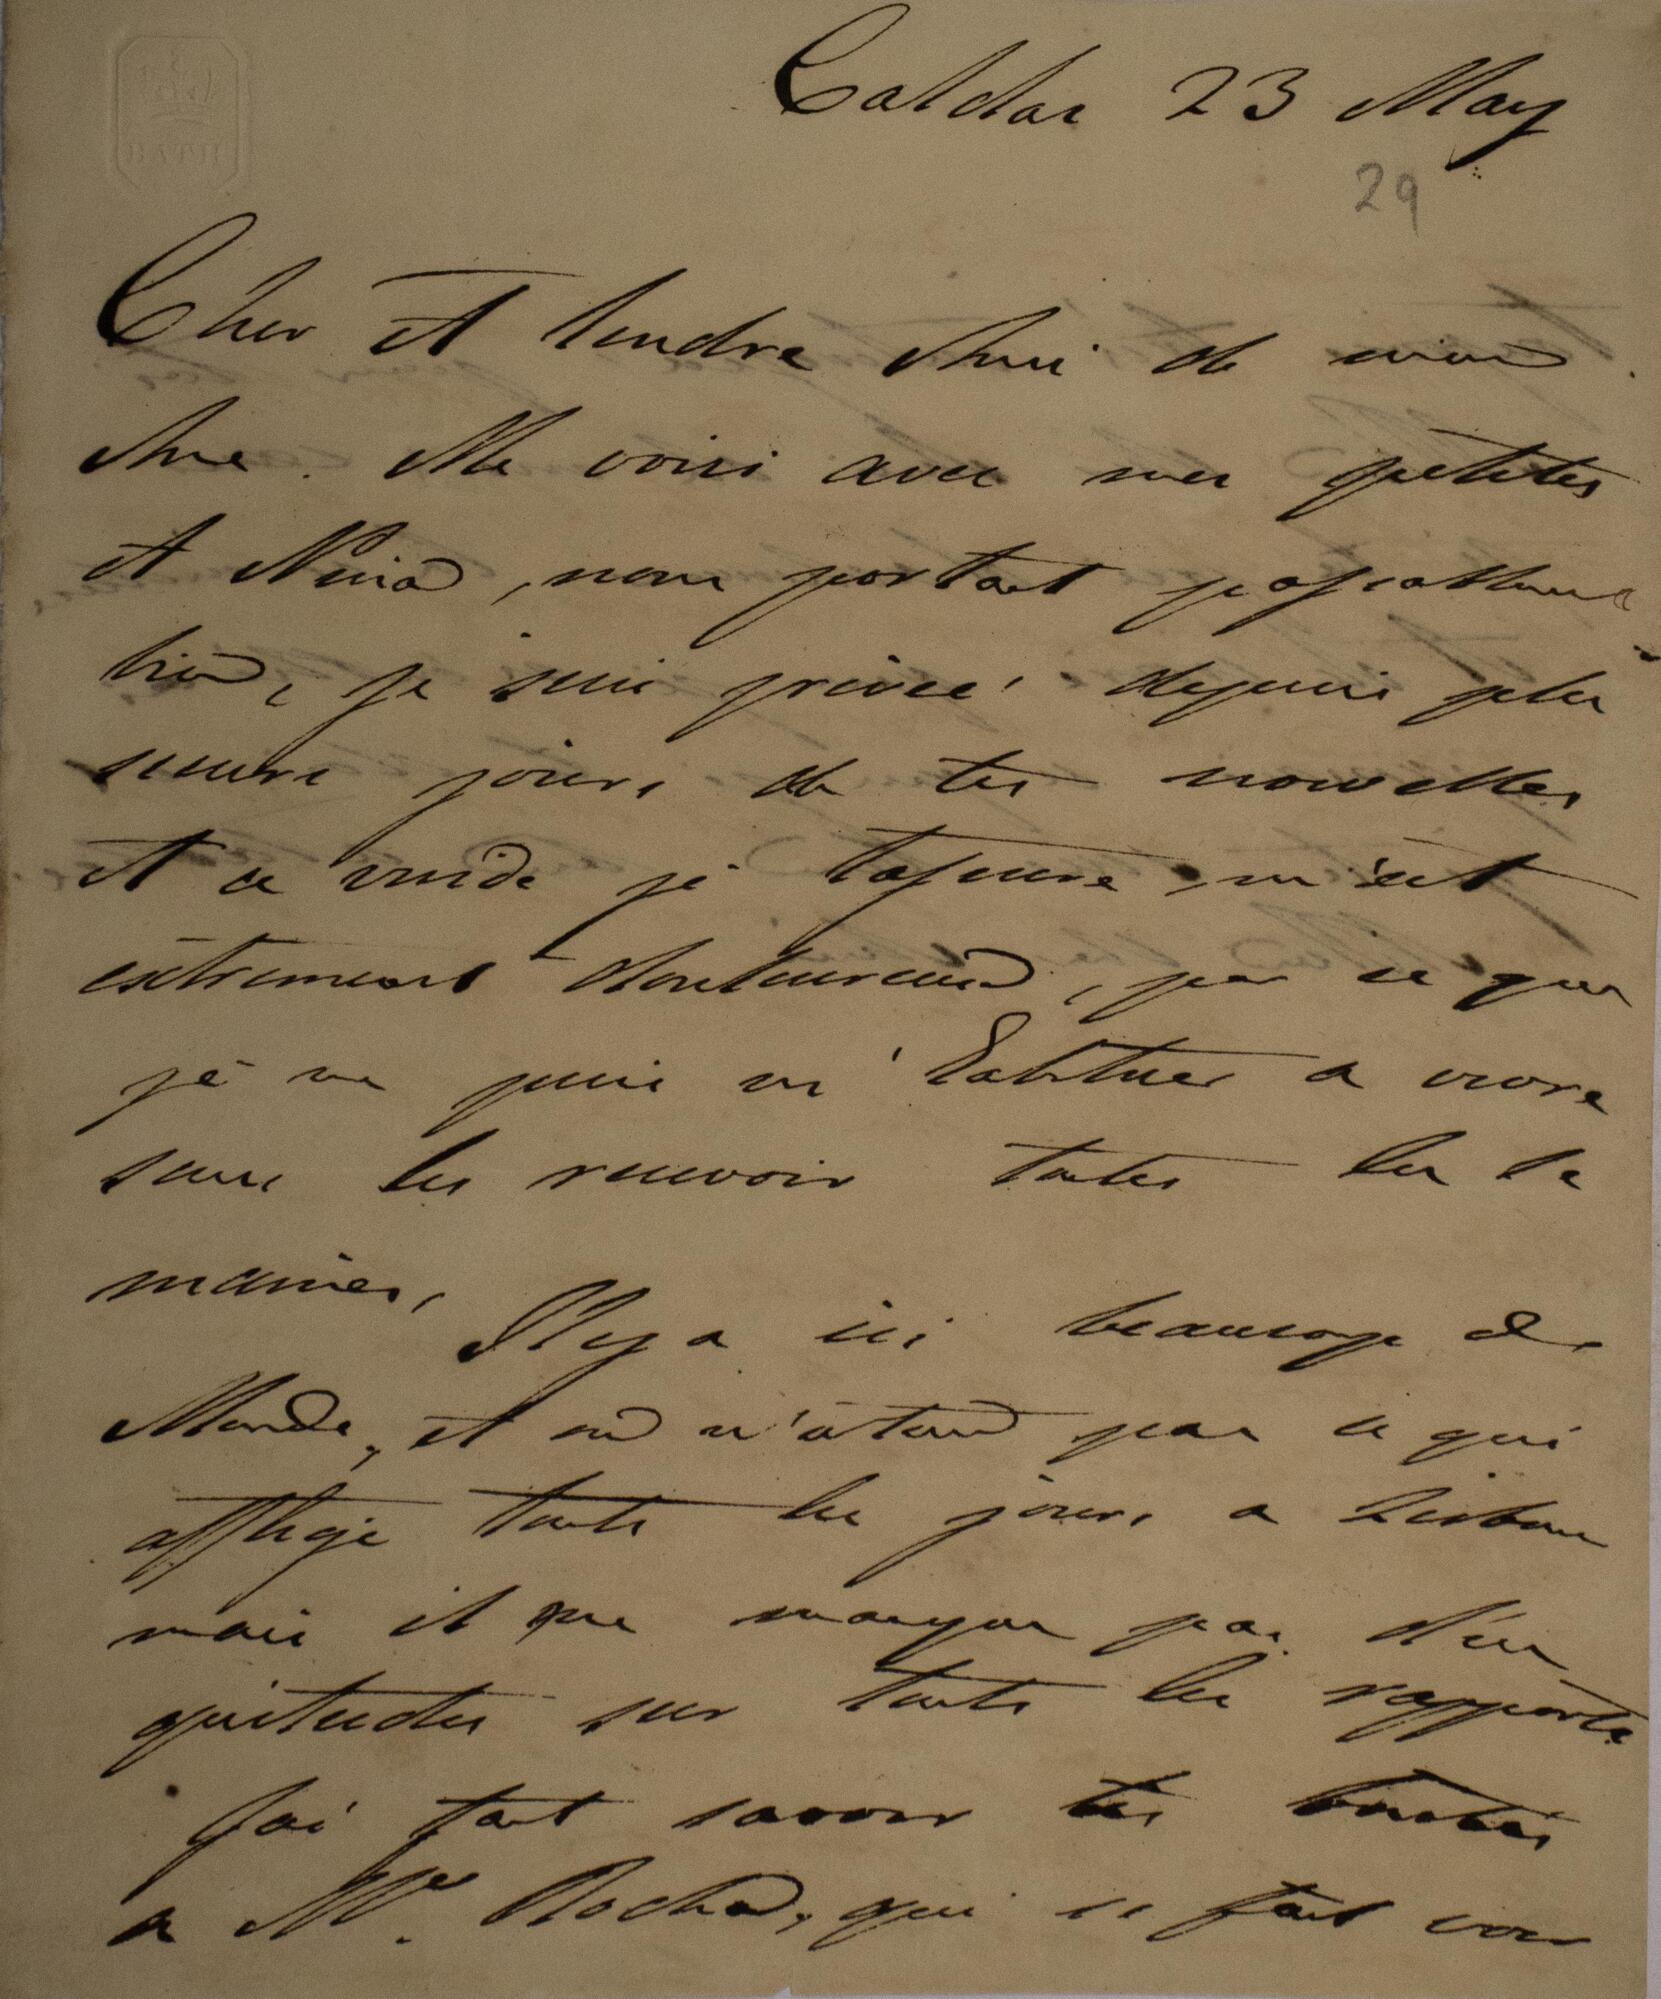 BATH
Caldas 23 May
29
Cher et tendre Ami de mon
Ame. Me voici avec mes petites
et Nina, nous portant passablement
bien, je suis privée depuis plu
sieurs jours de tes nouvelles
et ce vuide je t'assure, m'est
extremement douloureux, par ce que
je ne puis m'habituer a vivre
sans les recevoir toutes les se
maines, Il y a ici beaucoup de
Monde, et on n'atend pas ce qui
afflige touts les jours a Lisbone
mais il ne manque pas d'in
quietudes sur touts les rapports
J'ai fait savoir tes bontés
a Mr. Rocha, qui se fait